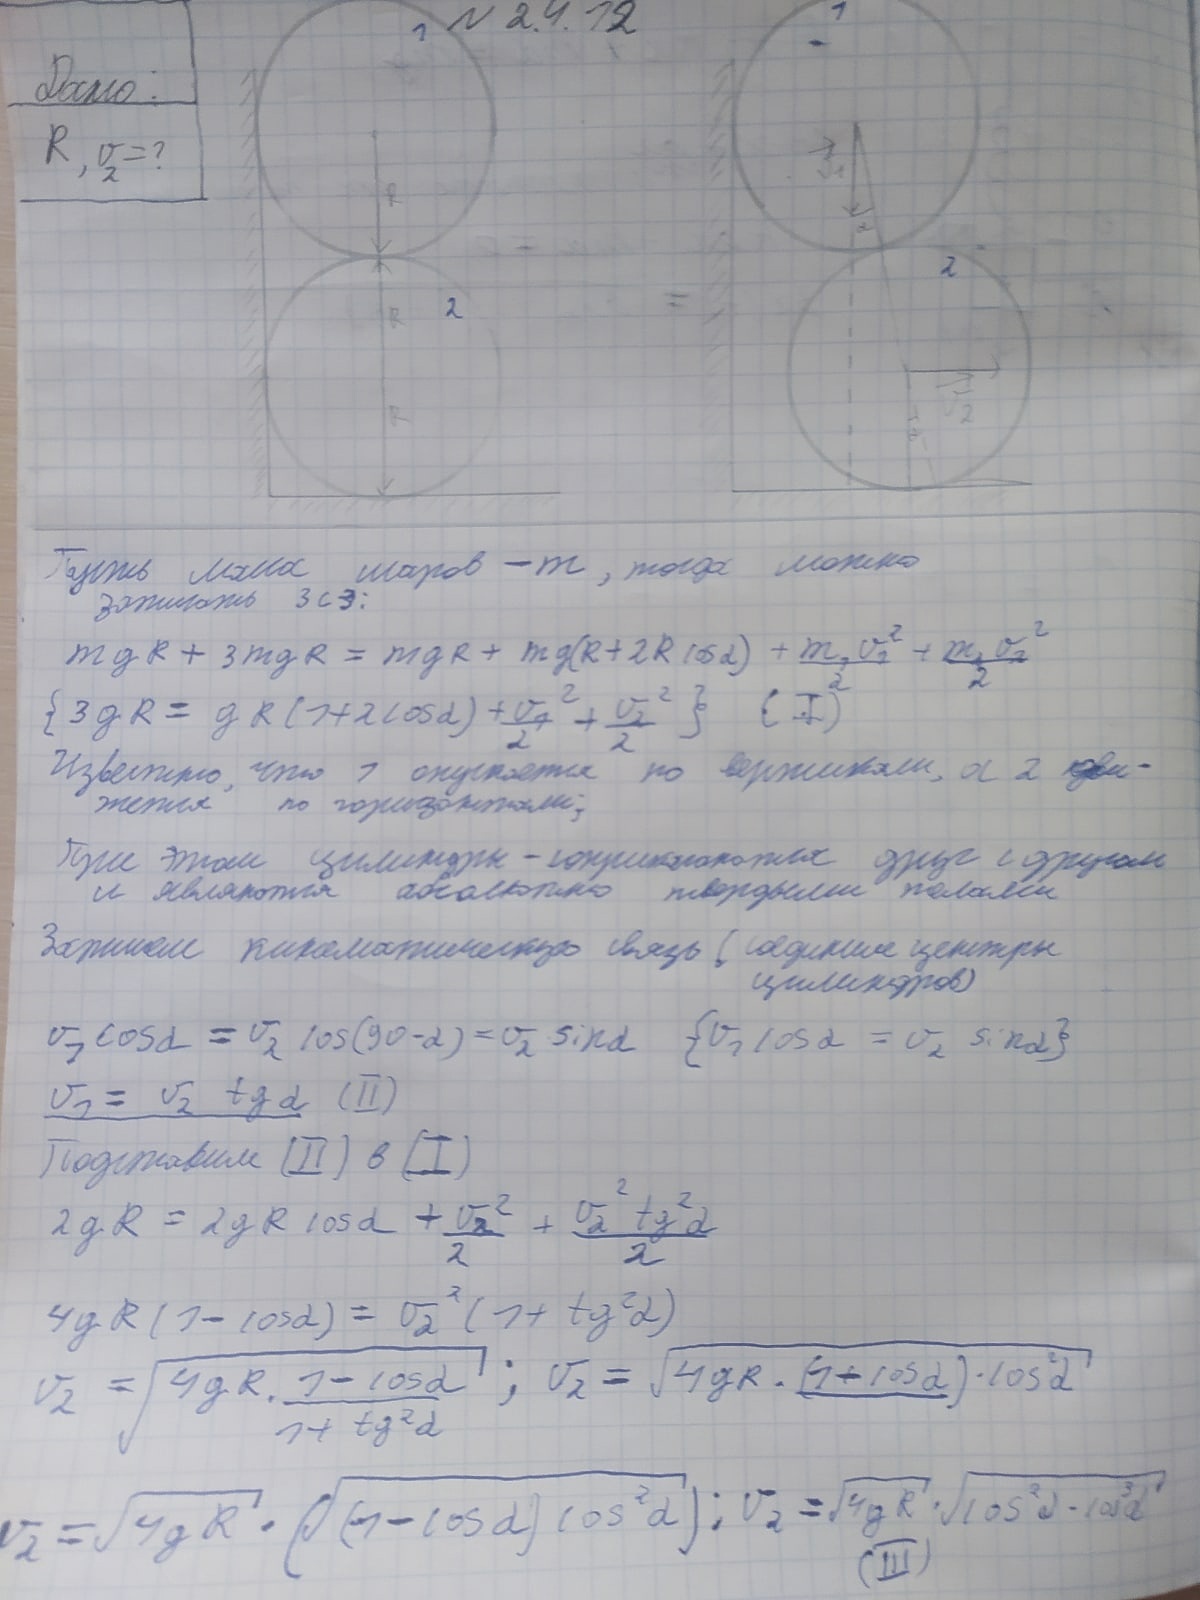 N 2.4.12
Дано:
R, v₂=?
1
R
2
R
R
1
v₁
α
2
v₂
α
Пусть масса шаров – m, тогда можно
записать ЗСЭ:
mgR + 3mgR = mgR + mg(R+2R cosα) + m₁v₁²/2 + m₂v₂²/2
{3gR = gR(1+2cosα) + v₁²/2 + v₂²/2} (I)
Известно, что 1 опускается по вертикали, а 2 дви-
жется по горизонтали;
При этом цилиндры – соприкасаются друг с другом
и являются абсолютно твердыми телами
Запишем кинематическую связь (соединив центры
цилиндров)
v₁ cosα = v₂ cos(90-α) = v₂ sinα {v₁ cosα = v₂ sinα}
v₁ = v₂ tgα (II)
Подставим (II) в (I)
2gR = 2gR cosα + v₂²/2 + v₂² tg²α/2
4gR(1-cosα) = v₂²(1+tg²α)
v₂ = √(4gR · (1-cosα)/(1+tg²α)); v₂ = √(4gR · (1+cosα) · cos²α)
v₂ = √(4gR) · (√((1-cosα) cos²α)); v₂ = √(4gR) · √(cos²α - cos³α)
(III)